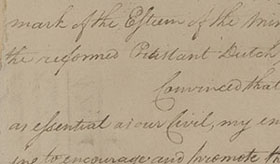 mark of the Esteem of the Min
the reformed Protestant Dutch
Convinced that
as essential as our Civil, my en
ing to encourage and promote